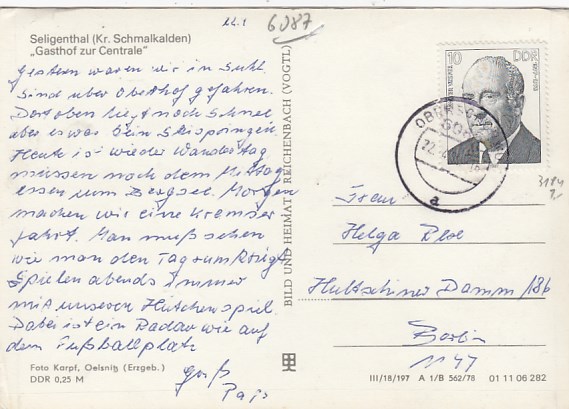 22.1
6087
Seligenthal (Kr. Schmalkalden)
„Gasthof zur Centrale"
Gestern waren wir in Suhl.
Sind über Oberhof gefahren.
Dort oben liegt noch Schnee
aber es war kein Skispringen.
Heute ist wieder Wandertag
müssen nach dem Mittag
essen zum Bergsee. Morgen
machen wir eine Kremser
fahrt. Man muß sehen
wie man den Tag rum kriegt
Spielen abends immer
mit unserem Hütchenspiel.
Dabei ist ein Radau wie auf
dem Fußballplatz
Gruß
Foto Karpf, Oelsnitz (Erzgeb.)
DDR 0,25 M
BILD UND HEIMAT REICHENBACH (VOGTL)
10
DDR
a
3114
Frau
Helga
Hultschiner Damm 186
Berlin
1147
III/18/197 A 1/B 562/78 01 11 06 282